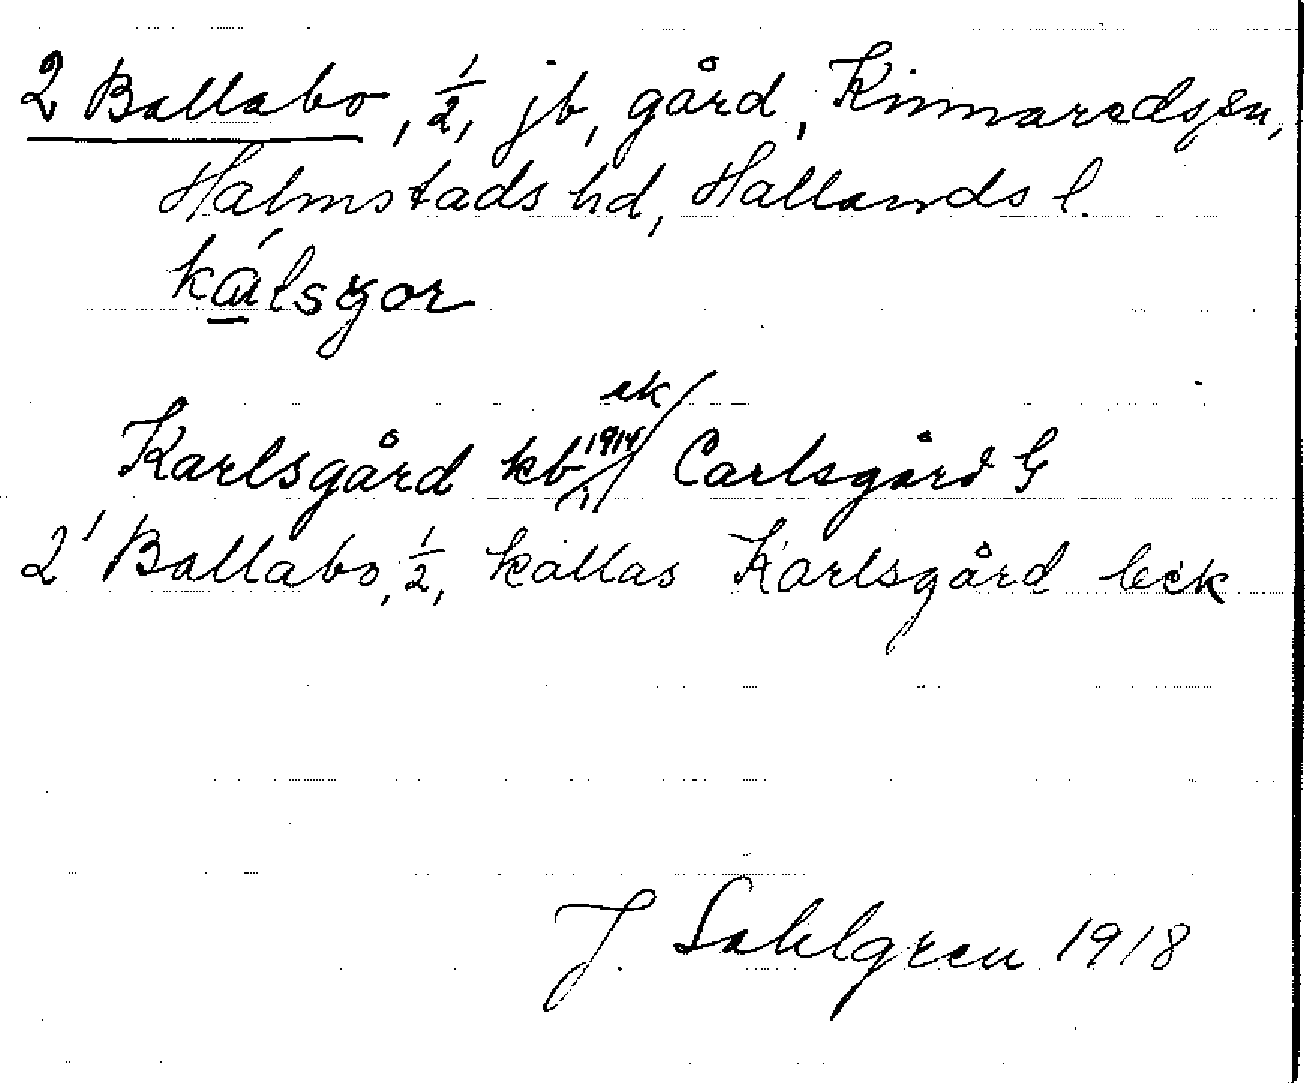 2 Ballabo, 1/2, jb, gård, Kinnareds sn,
Halmstads hd, Hallands l.
kálsgor
ek
Karlsgård kb 1914 Carlsgård G
2' Ballabo, 1/2, kallas Karlsgård
J. Sahlgren 1918